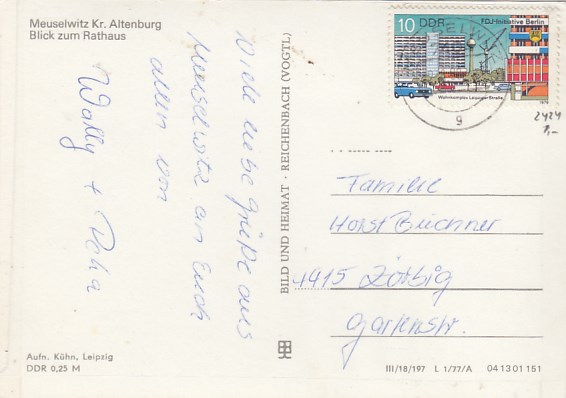 Meuselwitz Kr. Altenburg
Blick zum Rathaus
Viele liebe Grüße aus
Meuselwitz an Euch
allen von
Wally + Papa
BILD UND HEIMAT · REICHENBACH (VOGTL)
10 DDR
FDJ-Initiative Berlin
Wohnkomplex Leipziger Straße
1979
g
2424
1,–
Familie
Horst Büchner
4415 Zörbig
Gartenstr.
Aufn. Kühn, Leipzig
DDR 0,25 M
III/18/197 L 1/77/A 04 13 01 151